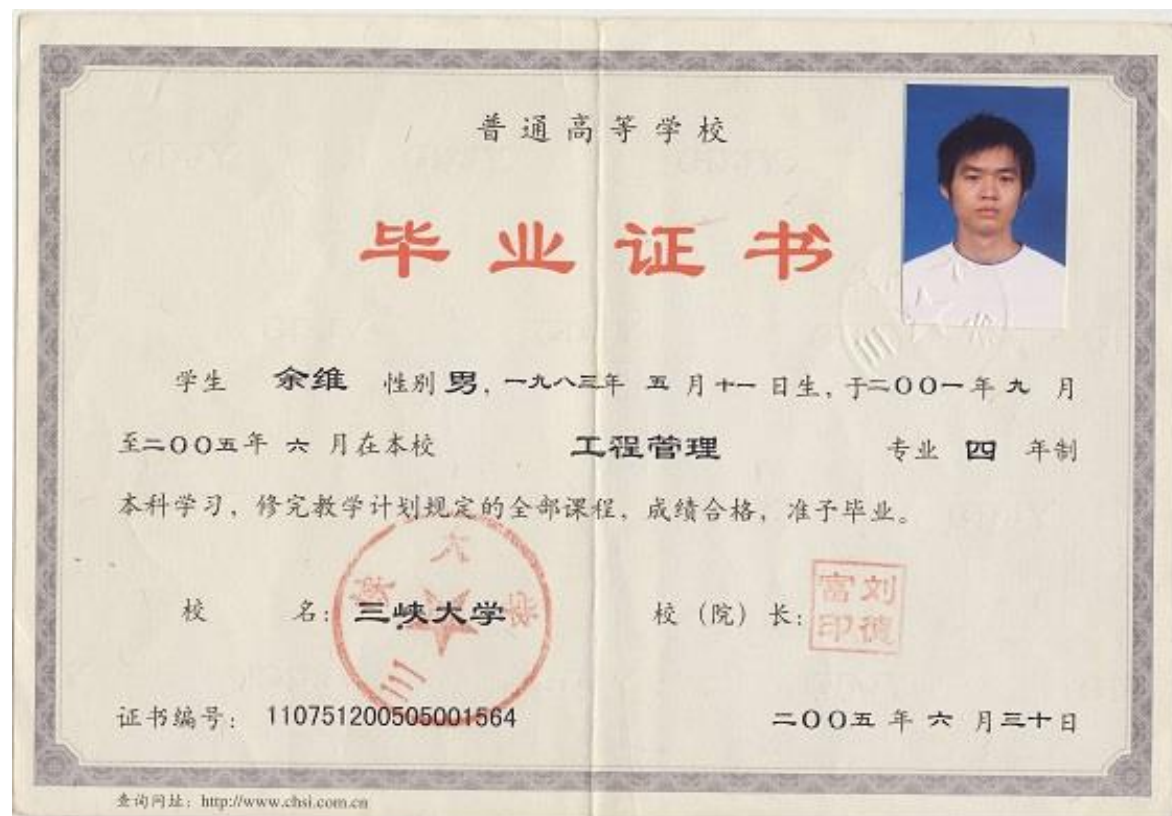 普通高等学校
毕业证书
学生 余维 性别 男, 一九八三年 五 月 十一 日生, 于二00一年 九 月
至二00五年 六 月在本校 工程管理 专业 四 年制
本科学习, 修完教学计划规定的全部课程, 成绩合格, 准予毕业。
校 名: 三峡大学 校 (院) 长:
三峡大学
刘德富印
证书编号: 110751200505001564 二00五 年 六 月三十日
查询网址: http://www.chsi.com.cn